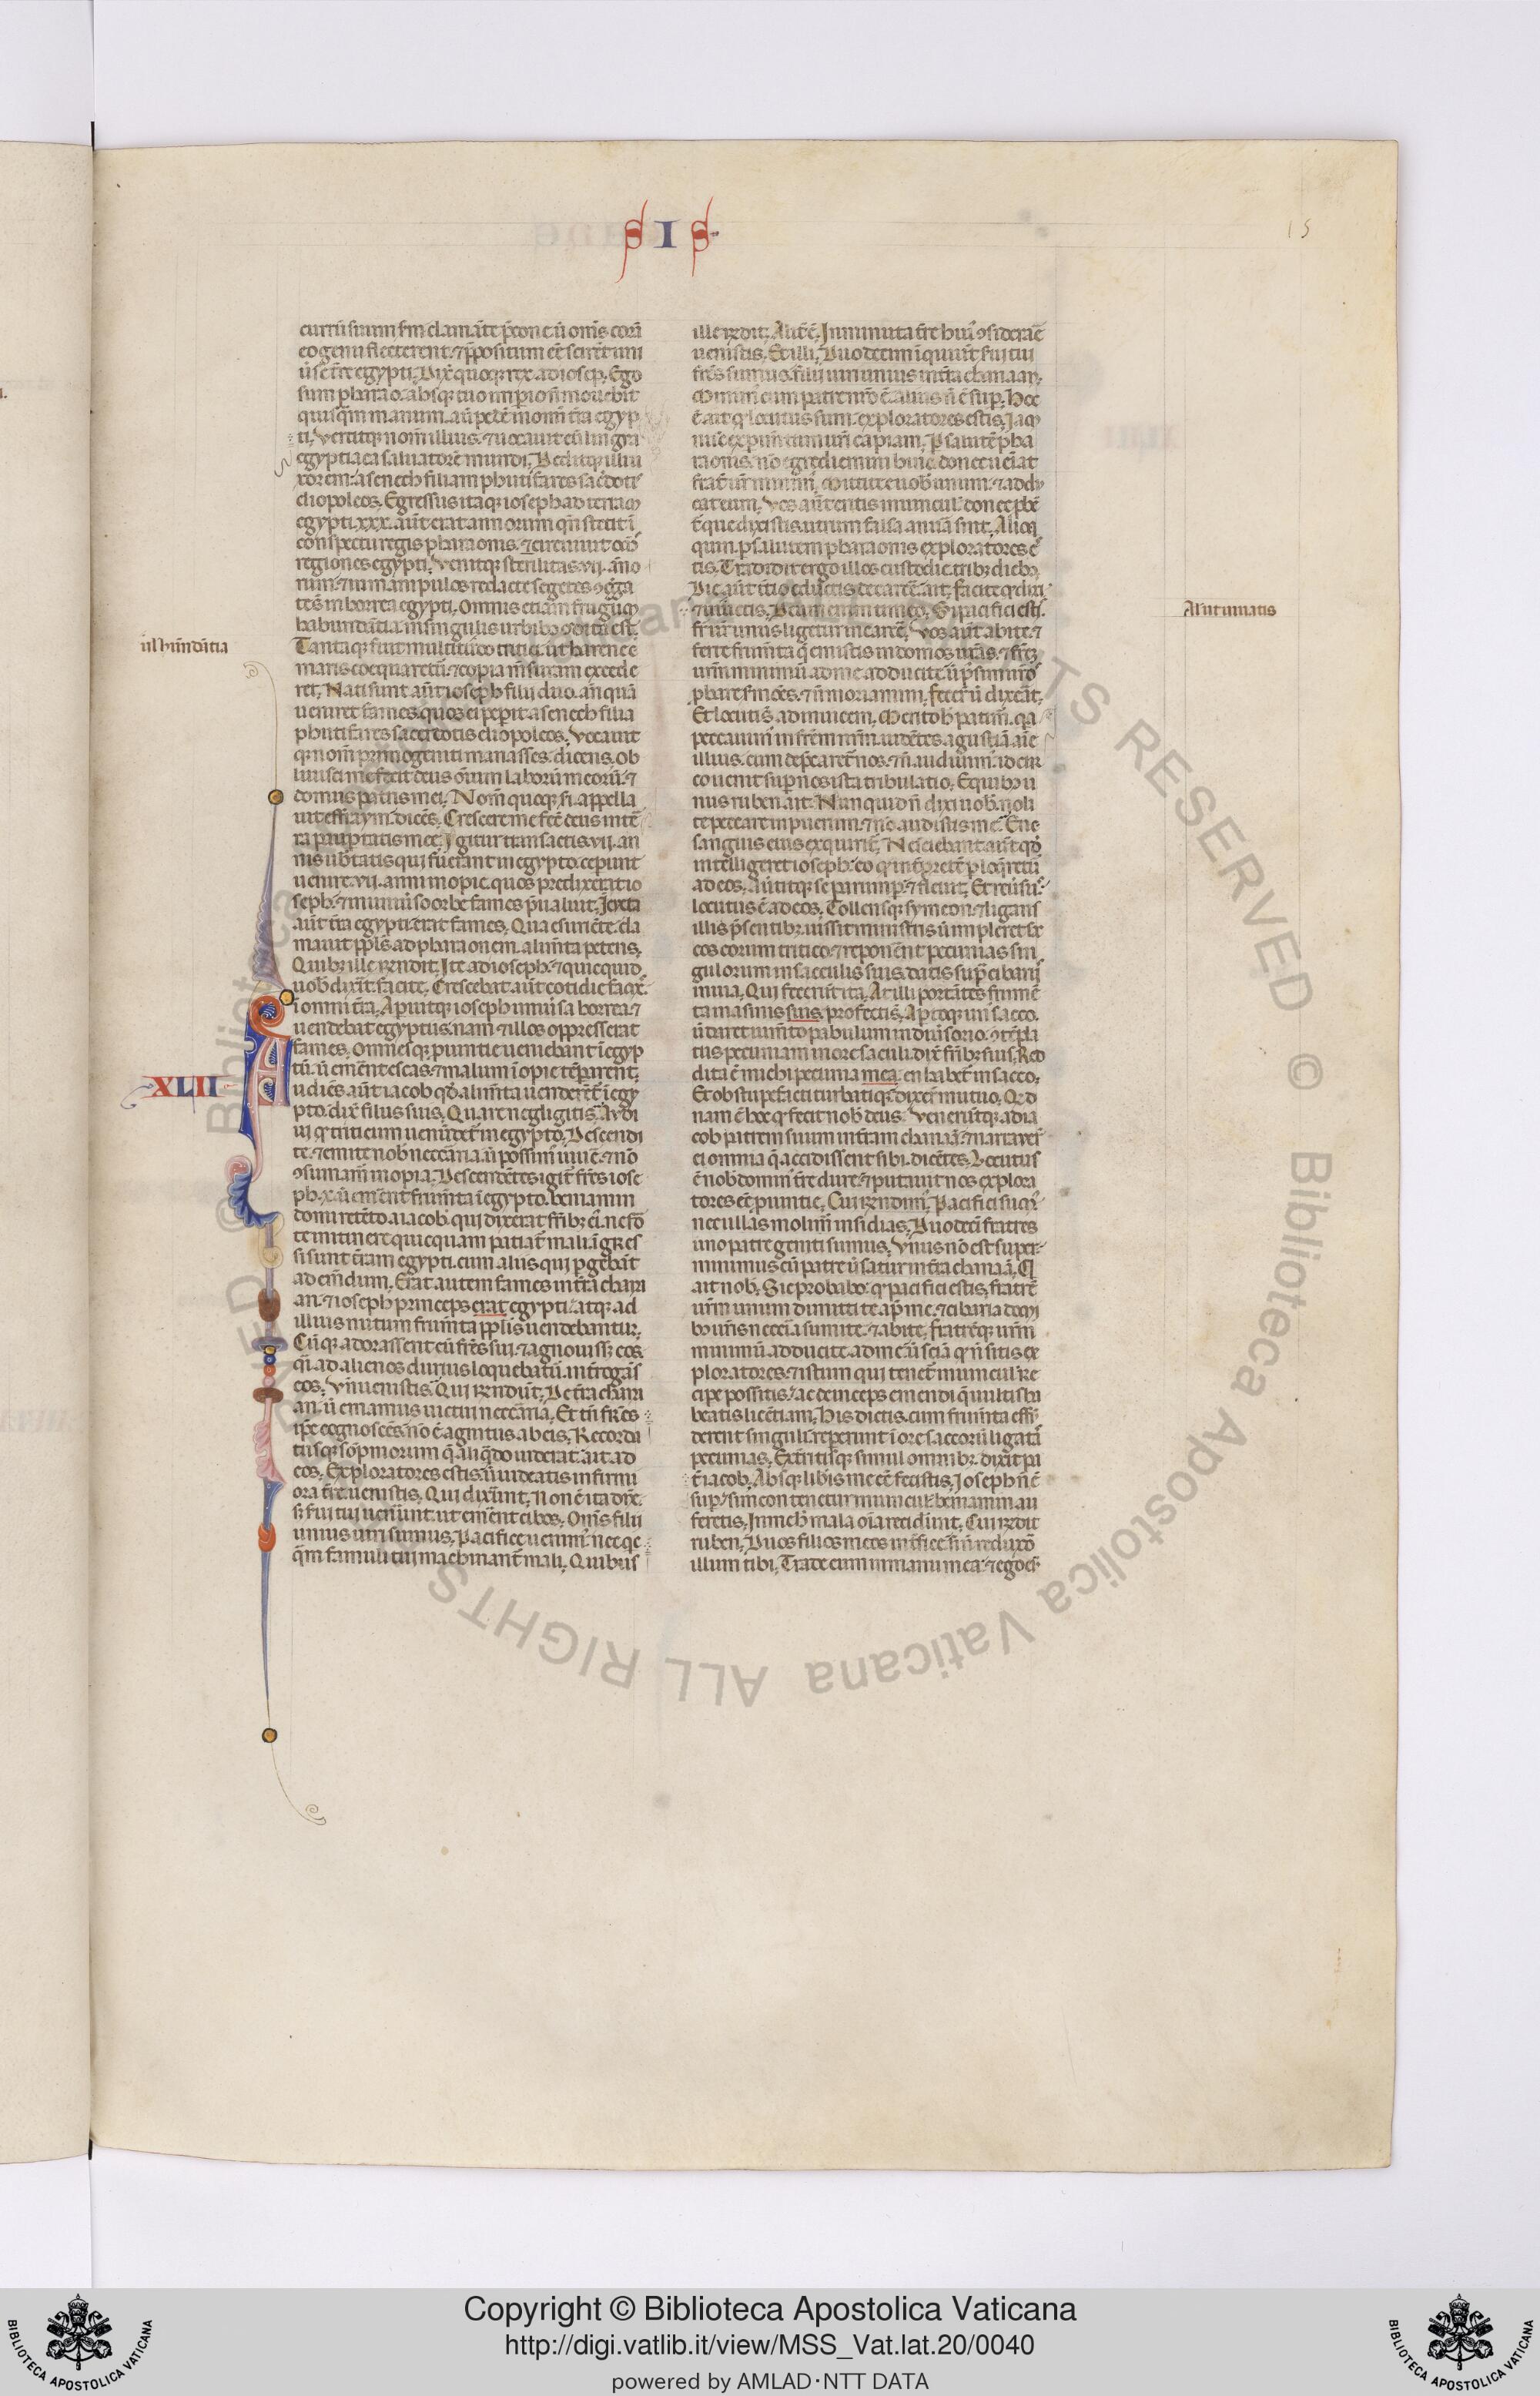 SIS
15
currū suum f̄m clamāte p̄cone ū om̄s corā
eo genu flecterent. ⁊ p̄positum eē̄ scirēt uni
ūse t̄re egypti. Dix̄ quoq; rex. ad ioseph. Ego
sum pharao. absq; tuo impio n̄ mouebit
quisq̄m manum. aū pedē in om̄i t̄ra egyp
ti. Vertitq; nom̄ illius. ⁊ uocauit eū lingua
egyptiaca saluatorē mundi. Deditq; illi u
xorem. asenech filiam phutifares sac̄doti
eliopoleos. Egressus itaq; ioseph ad terram
egypti. xxx. aūt erat annorum qn̄ stetit ī
conspectu regis pharaonis. ⁊ circuiuit om̄s
regiones egypti. Venitq; sterilitas. vii. āno
rum. ⁊ in manipulos redacte segetes ꝯḡga
tēs in horrea egypti. Omnis etiam frugum
habundātia. in singulis urbib; ꝯdita est.
Tantaq; fuit multitudo tritici. ut harene
maris coequaretū. ⁊ copia m̄suram excede
ret. Nati sunt aūt ioseph filij duo. an̄quā
ueniret fames. quos ei pepit asenech filia
phutifares sacerdotis eliopoleos. Vocauit
q; nom̄ primogeniti manasses. dicens. ob
liuisci me fecit deus om̄ium laborū meorū. ⁊
domus patris mei. Nom̄ quoq; s̄i. appella
uit effraym. dicēs. Crescere me fec̄ deus in t̄
ra paupertatis mee. Igitur transactis. vii. an
nis ub̄tatis qui fuerant in egypto. cepunt
uenire. vii. anni inopie. quos predixerat io
seph. ⁊ in uniūso orbe fames p̄ualuit. In cūcta
aūt t̄ra egypti erat fames. Qua esuriēte. cla
mauit ppl̄s. ad pharaonem. alim̄ta petens.
Quib; ille rn̄dit. Ite ad ioseph. ⁊ quicquid
uob̄ dixit̄. facite. Crescebat aūt cotidie fames
ī omni t̄ra. Aperuitq; ioseph uniūsa horrea. ⁊
uendebat egyptiis. nam ⁊ illos oppresserat
fames. Omnesq; puincie ueniebant ī egyp
tū. ū emerēt escas. ⁊ malum īopie tēparent.
Audiēs aūt iacob qd̄ alim̄ta uenderēt̄ ī egy
pto. dix̄ filiis suis. Quare negligitis. Audi
ui q̄ triticum uenūdet̄ in egypto. Descendi
te. ⁊ emite nob̄ necc̄aria. ū possim̄ uiuē. ⁊ nō
ꝯsumam̄ inopia. Descendētes igit̄ fr̄es iose
ph. x. ū emerēt frum̄ta ī egypto. beniamin
domi retēto. a iacob. qui dixerat fr̄ib; ei. ne fō
te in itinere quicquam patiat̄ mali. īgres
si sunt t̄ram egypti. cum aliis qui pgebāt
ad emēdum. Erat autem fames in t̄ra chan
an. ⁊ ioseph princeps erat egypti. atq; ad
illius nutum frum̄ta ppl̄is uendebantur.
Cūq; adorassent eū fr̄es sui. ⁊ agnouiss̄; eos.
q̄i ad alienos durius loquebatū. int̄rogās
eos. Vn̄ uenistis. Qui rn̄dūt. De t̄ra chan
an. ū emamus uictui necc̄aria. Et tn̄ fr̄es
ipe cognoscēs. nō ē agnitus ab eis. Recorda
tusq; somniorum q̄ aliq̄do uiderat. ait ad
eos. Exploratores estis. ū uideatis infirmi
ora t̄re uenistis. Qui dixerūt. Non ē ita dn̄e.
s; serui tui uenerūt. ut emerēt cibos. Om̄s filii
unius uiri sumus. Pacifice uenim̄. nec qc
q̄m famuli tui machinant̄ mali. Quibus
ul' hūndātia
XLII
ille rn̄dit. Alit̄ ē. Inmunita t̄re hui ꝯsiderare
uenistis. Et illi. Duodecim īquiūt serui tui
fr̄es sumus. filii uiri unius in t̄ra chanaan.
Minim̄ cum patre nr̄o ē. alius n̄ ē sup. Hoc
ē ait q̄ locutus sum. exploratores estis. Iam
nūc expim̄tum ur̄i capiam. P salutē pha
raonis. nō egrediemini hinc donec ueīat
frat̄ ur̄ minim̄. Mittite ex uob̄ unum. ⁊ addu
cat eum. Vos aūt eritis in uinculis donec pbē
t̄ que dixistis. utrum falsa an uera sint. Alioq
quin. p salutem pharaonis exploratores ē
tis. Tradidit ergo illos custodie. trib; dieb;.
Die aūt t̄tio eductis de carcē. ait. facite q̄ dixi
⁊ uiuetis. Deum enim timeo. Si pacifici estis.
fr̄ ur̄ unus ligetur in carcē. Vos aūt abite. ⁊
ferte frum̄ta q̄ emistis in domos ur̄as. ⁊ fr̄em
ur̄m minimū ad me adducite. ū possim ur̄os
pbare sermōes. ⁊ n̄ moriamini. fecer̄ ū dixerāt.
Et locuti s̄ ad inuicem. Merito h̄ patim̄. qa
peccauim̄ in fr̄em nr̄m. uidētes agustiā aīe
illius. cum dep̄caret̄ nos. ⁊ n̄ audiuim̄. idcir
co uenit sup nos ista tribulatio. E quib; u
nus ruben. ait. Nunquid n̄ dixi uob̄. noli
te peccare in puerum. ⁊ nō audistis me. En e
sanguis eius exquirit̄. Nesciebant aūt qd̄
intelligeret ioseph. eo q̄ int̄pretē p loq̄retū
ad eos. Aūtitq; se parump. ⁊ fleuit. Et reūsus
locutus ē ad eos. Tollensq; symeon. ⁊ ligans
illis p̄sentib;. iussit ministris ū implerēt sac
cos eorum tritico. ⁊ reponerēt pecunias sin
gulorum in sacculis suis. datis supra cibariis
in uia. Qui fecerūt ita. At illi portātes frumē
ta in asinis suis. profecti s̄. Aptoq; un̄ sacco.
ū daret iumēto pabulum in diūsorio. ꝯtēpla
tus pecuniam in ore saculi. dix̄ fr̄ib; suis. Red
dita ē michi pecunia mea. en habet̄ in sacco.
Et obstupefacti turbatiq;. dixer̄ mutuo. Qd
nam ē hoc q̄ fecit nob̄ deus. Venerūtq; ad ia
cob patrem suum in t̄ram chanaā. ⁊ narrauer̄
ei omnia q̄ accidissent sibi. dicētes. Locutus
ē nob̄ domin̄ t̄re dure. ⁊ putauit nos explora
tores eē puincie. Cui rn̄dim̄. Pacifici sum̄.
nec ullas molim̄ insidias. Duodeci fratres
uno patre geniti sumus. Vnus nō est super.
minimus cū patre ūsatur in t̄ra chanaā. Q
ait nob̄. Sic probabo. q̄ pacifici estis. fratrē
ur̄m unum dimittite ap̄ me. ⁊ cibaria domi
b; ur̄is necc̄ia sumite. ⁊ abite. fratrēq; ur̄m
minimū adducite ad me. ū sciā q̄ n̄ sitis ex
ploratores. ⁊ istum qui tenet̄ in uinculis re
cipe possitis. ac deinceps emendi q̄ uultis ha
beatis licētiam. His dictis. cum frum̄ta effū
derent singuli. reperiunt ī ore saccorū ligatas
pecunias. Ext̄ritisq; simul omnib;. dixit pa
t̄ iacob. Absq; liberis me eē fecistis. Ioseph n̄ ē
sup. simeon tenetur in uinculis. beniamin au
feretis. In me h̄ mala oīa reciderūt. Cui rn̄dit
ruben. Duos filios meos int̄fice. si n̄ reduxō
illum tibi. Trade eum in manu mea. ⁊ ego eū
Al' ut uiuatis
Copyright © Biblioteca Apostolica Vaticana
http://digi.vatlib.it/view/MSS_Vat.lat.20/0040
powered by AMLAD·NTT DATA
BIBLIOTECA APOSTOLICA VATICANA
BIBLIOTECA APOSTOLICA VATICANA
© Biblioteca Apostolica Vaticana ALL RIGHTS RESERVED